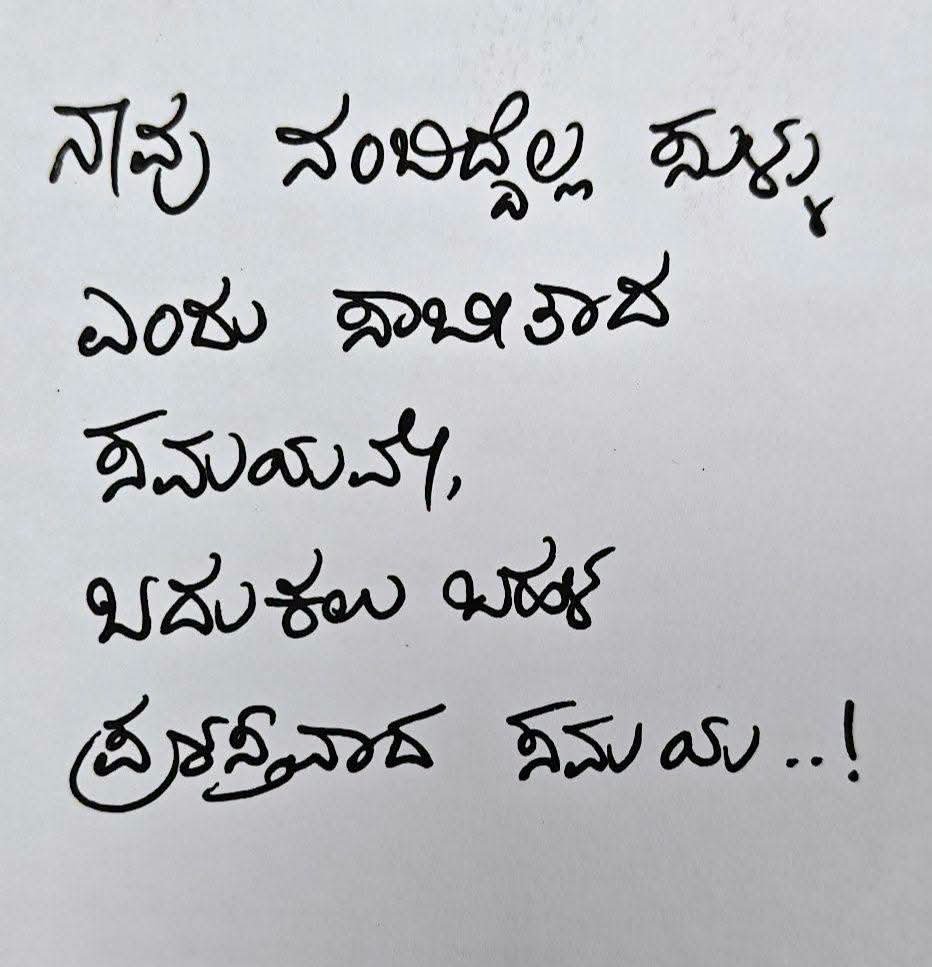 ನಾವು ನಂಬಿದ್ದೆಲ್ಲ ಸುಳ್ಳು
ಎಂದು ಸಾಬೀತಾದ
ಸಮಯವೇ,
ಬದುಕಲು ಬಹಳ
ಪ್ರಶಸ್ತವಾದ ಸಮಯ..!